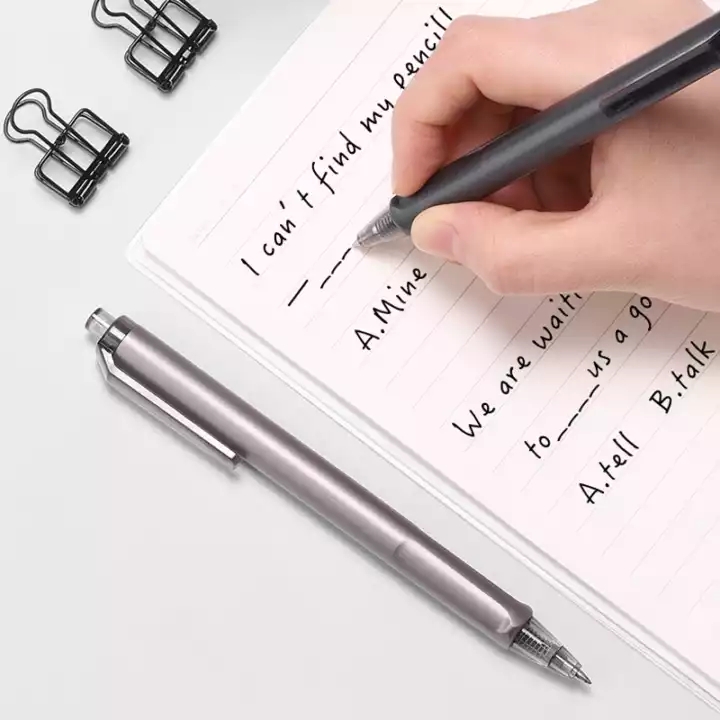 I can't find my pencil!
— ____
A.Mine
We are
to____us a
A.tell B.talk